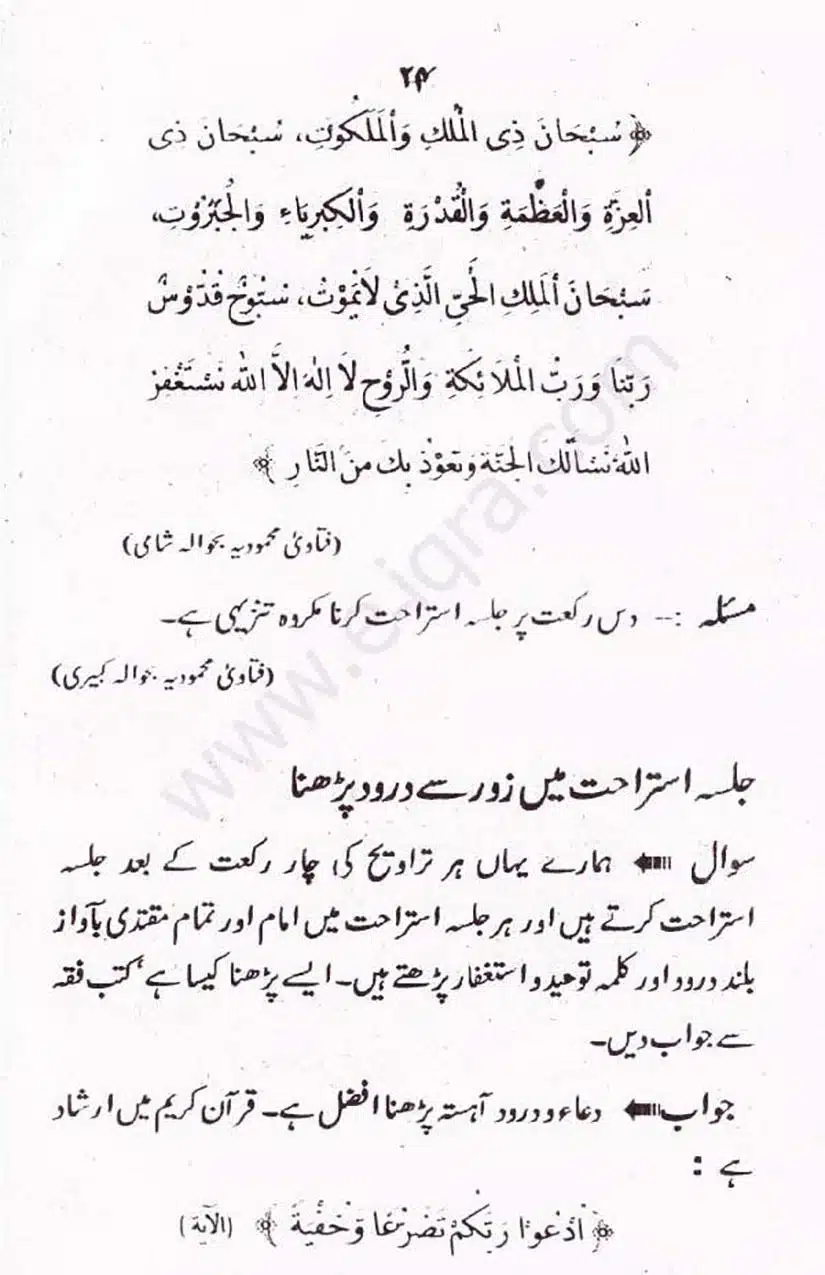 ۲۴
سُبْحَانَ ذِی الْمُلْكِ وَالْمَلَكُوْتِ، سُبْحَانَ ذِی
الْعِزَّةِ وَالْعَظْمَةِ وَالْقُدْرَةِ وَالْكِبْرِيَاءِ وَالْجَبَرُوْتِ،
سُبْحَانَ الْمَلِكِ الْحَيِّ الَّذِیْ لَايَمُوْتُ، سُبُّوْحٌ قُدُّوْسٌ
رَبُّنَا وَرَبُّ الْمَلَائِكَةِ وَالرُّوْحِ لَا اِلٰهَ اِلَّا اللهُ نَسْتَغْفِرُ
اللهَ نَسْأَلُكَ الْجَنَّةَ وَنَعُوْذُ بِكَ مِنَ النَّارِ
(فتاویٰ محمودیہ بحوالہ شامی)
مسئلہ :-- دس رکعت پر جلسہ استراحت کرنا مکروہ تنزیہی ہے۔
(فتاویٰ محمودیہ بحوالہ کبیری)
جلسہ استراحت میں زور سے درود پڑھنا
سوال ہمارے یہاں ہر تراویح کی چار رکعت کے بعد جلسہ
استراحت کرتے ہیں اور ہر جلسہ استراحت میں امام اور تمام مقتدی بآواز
بلند درود اور کلمہ توحید و استغفار پڑھتے ہیں۔ ایسے پڑھنا کیسا ہے‘ کتب فقہ
سے جواب دیں۔
جواب دعاء و درود آہستہ پڑھنا افضل ہے۔ قرآن کریم میں ارشاد
ہے :
اُدْعُوْا رَبَّكُمْ تَضَرُّعًا وَّخُفْيَةً (الآية)
www.e-iqra.com